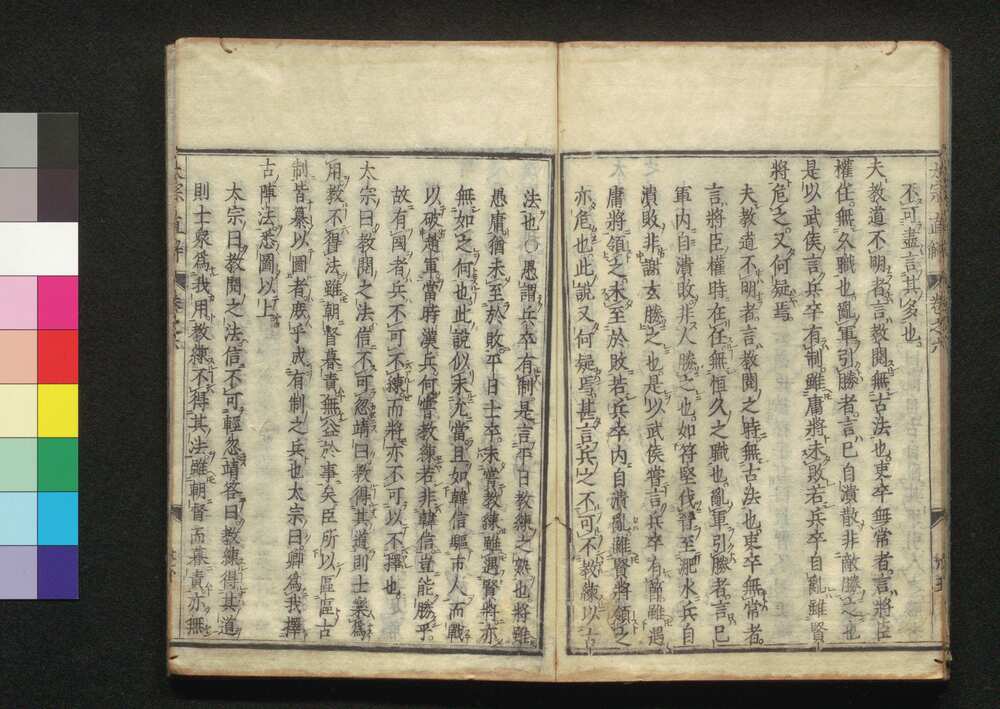 不可盡言其多也
夫教道不明者言教閱無古法也吏卒無常者言將臣
權任無久職也亂軍引勝者言已自潰散非敵勝之也
是以武侯言兵卒有制雖庸將未敗若兵卒自亂雖賢
將危之又何疑焉
夫教道不明者言教閱之時無古法也吏卒無常者
言將臣權時在任無恒久之職也亂軍引勝者言已
軍內自潰敗非人勝之也如符堅伐晉至淝水兵自
潰敗非謝玄勝之也是以武侯嘗言兵卒有制雖遇
庸將領之未至於敗若兵卒內自潰亂雖賢將領之
亦危也此說又何疑焉甚言兵之不可不教練以古
法也○愚謂兵卒有制是言平日教練之熟也將雖
愚庸猶未至於敗平日士卒未嘗教練雖遇賢將亦
無如之何也此說似未尤當且如韓信驅市人而戰
以破趙軍當時漢兵何嘗教練若非韓信豈能勝乎
故有國者兵不可不練而將亦不可以不擇也
太宗曰教閱之法信不可忽靖曰教得其道則士樂爲
用教不得法雖朝督暮責無益於事矣臣所以區區古
制皆纂以圖者庶乎成有制之兵也太宗曰卿爲我擇
古陣法悉圖以上
太宗曰教閱之法信不可輕忽靖答曰教練得其道
則士衆爲我用教練不得其法雖朝督而暮責亦無